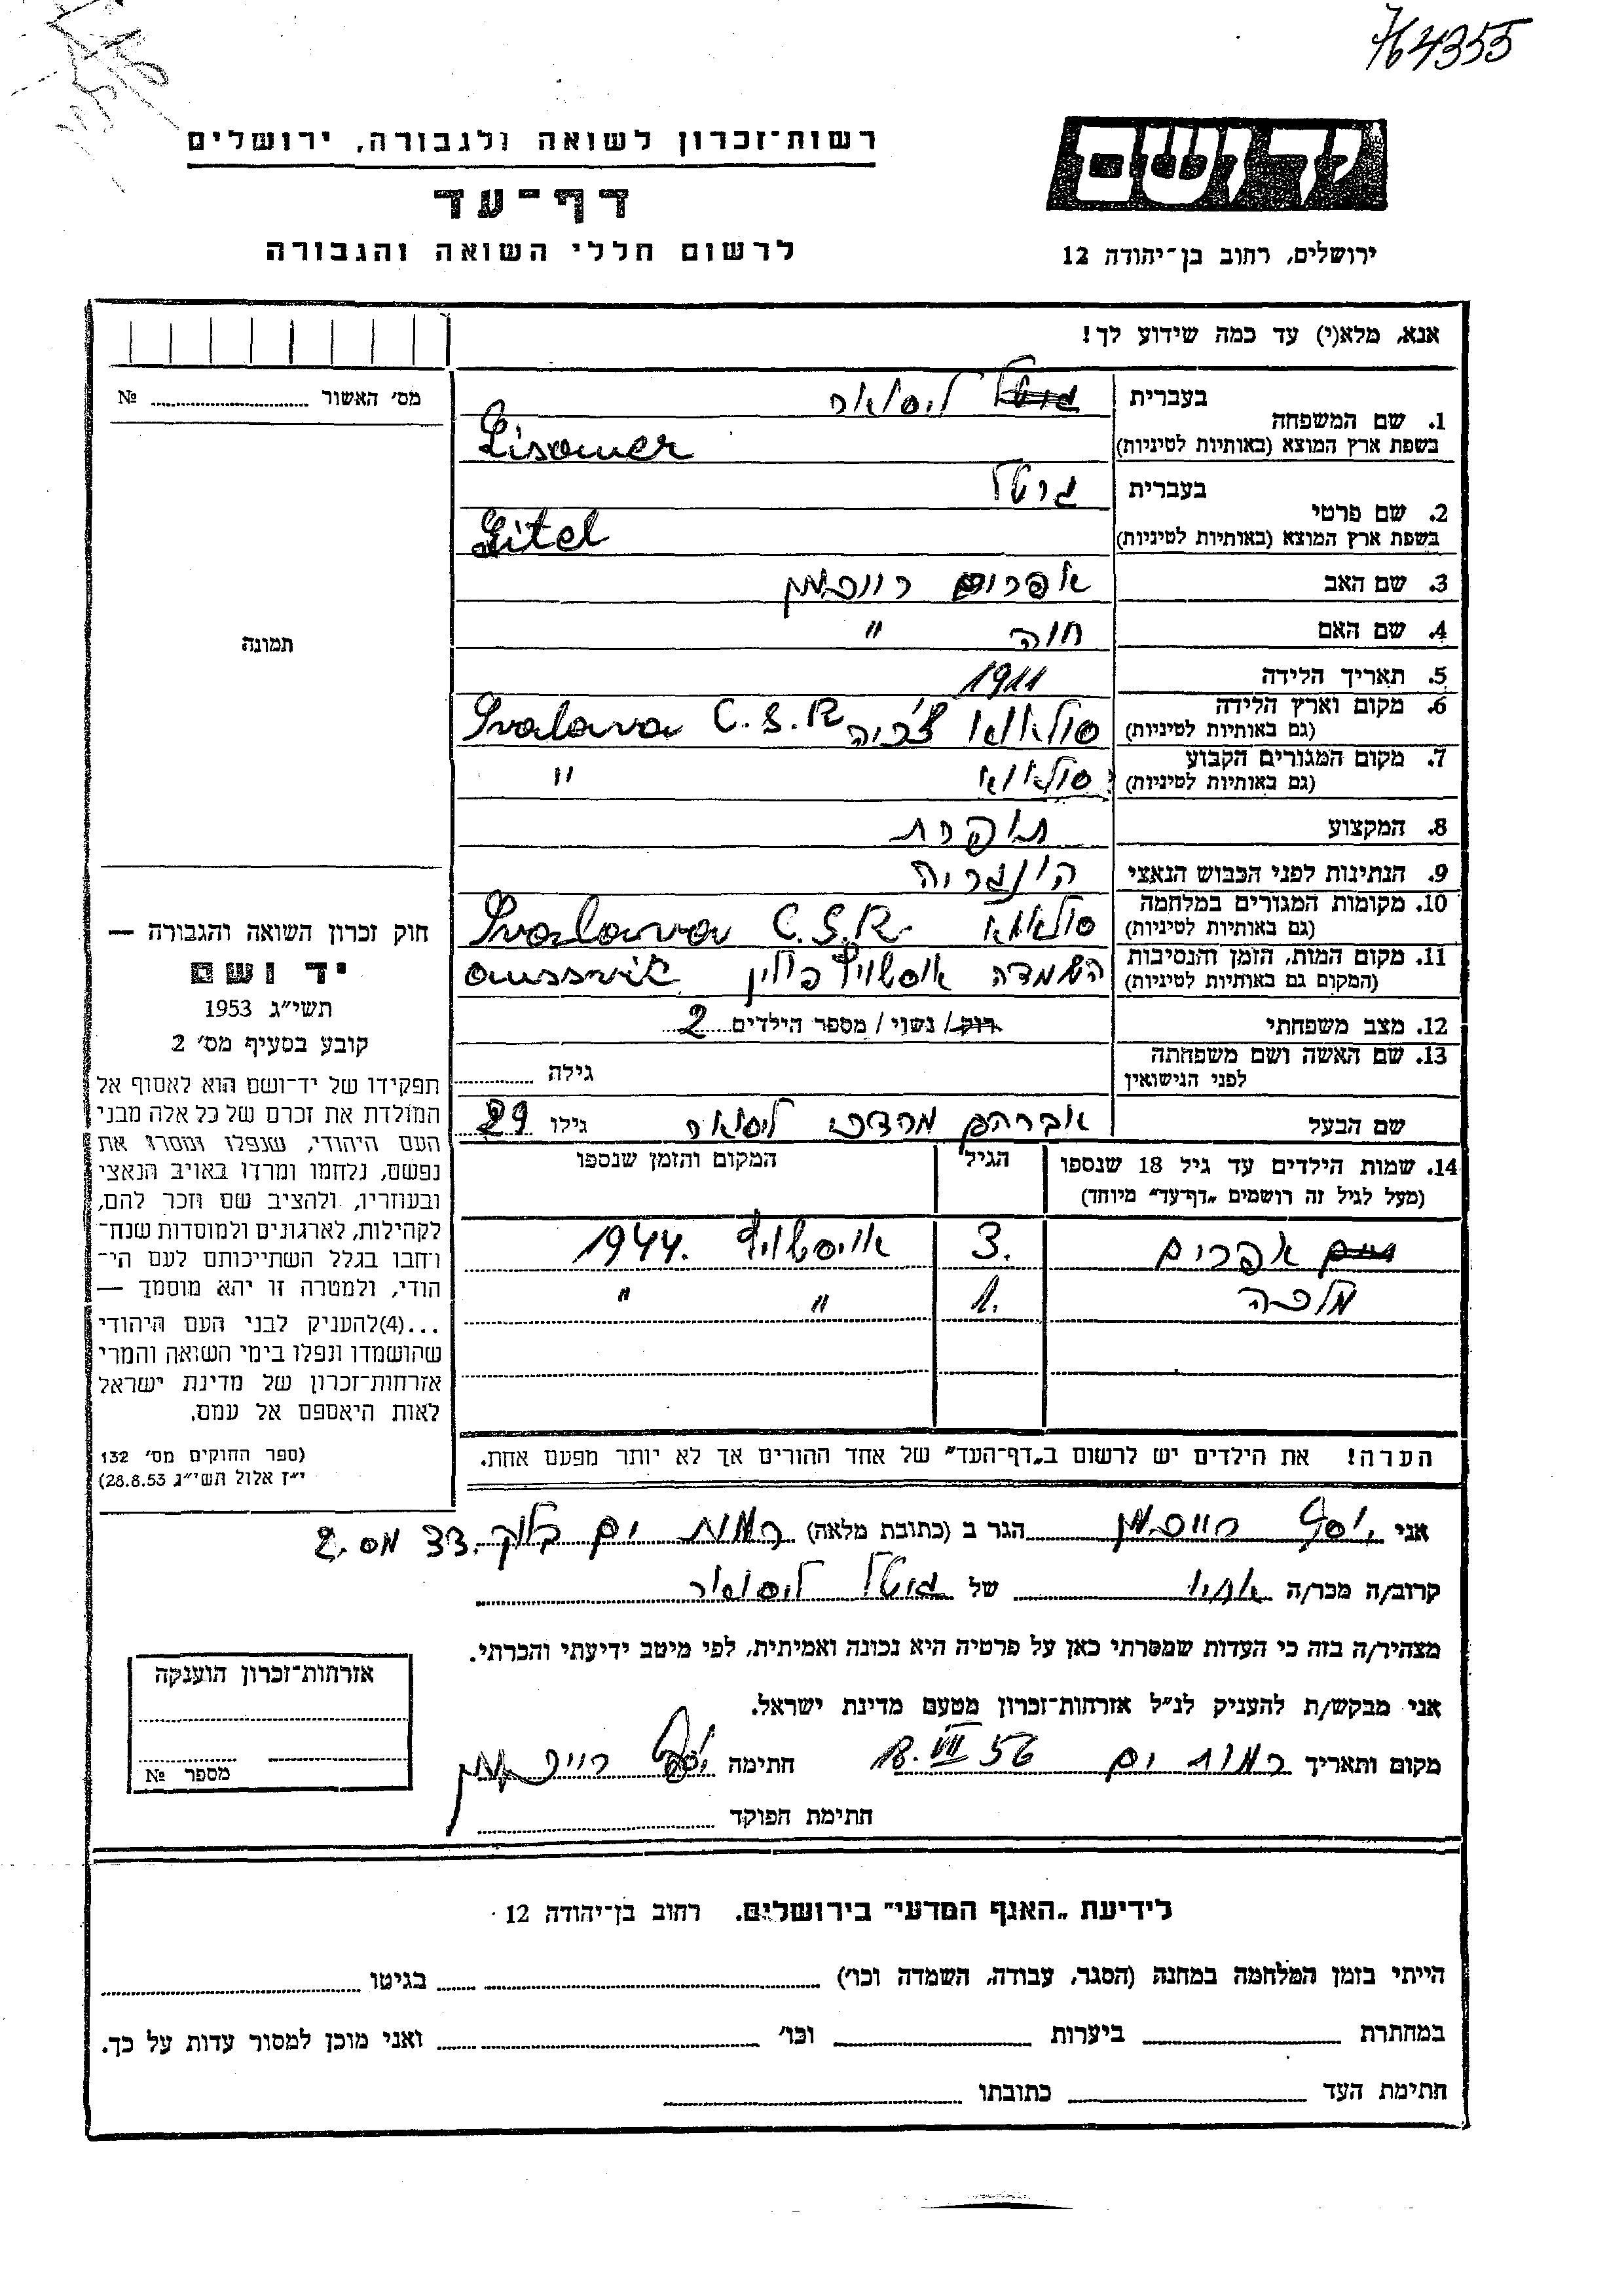 764355
רשות־זכרון לשואה ולגבורה, ירושלים
דף־עד
לרשום חללי השואה והגבורה
יד ושם
ירושלים, רחוב בן־יהודה 12
אנא, מלא(י) עד כמה שידוע לך!
מס׳ האשור № ...
1. שם המשפחה בעברית גיטל ליסאוער
בשפת ארץ המוצא (באותיות לטיניות) Lisauer
2. שם פרטי בעברית גיטל
בשפת ארץ המוצא (באותיות לטיניות) Gitel
3. שם האב אפרים רייכמן
4. שם האם חוה "
5. תאריך הלידה 1911
6. מקום וארץ הלידה (גם באותיות לטיניות) סולאווא צ'כיה Svalava C.S.R
7. מקום המגורים הקבוע (גם באותיות לטיניות) סולאווא "
8. המקצוע תופרת
9. הנתינות לפני הכבוש הנאצי הונגריה
10. מקומות המגורים במלחמה (גם באותיות לטיניות) סולאווא Svalava C.S.R.
11. מקום המות, הזמן והנסיבות (המקום גם באותיות לטיניות) השמדה אוסשויץ פולין
12. מצב משפחתי רוק / נשוי / מספר הילדים 2
13. שם האשה ושם משפחתה לפני הנישואין גילה
שם הבעל אברהם מרדכי גילו 29
14. שמות הילדים עד גיל 18 שנספו (מעל לגיל זה רושמים „דף־עד" מיוחד) הגיל המקום והזמן שנספו
אפרים 3. אויסשויץ 1944.
מלכה 1. " "
הערה! את הילדים יש לרשום ב„דף־העד" של אחד ההורים אך לא יותר מפעם אחת.
תמונה
חוק זכרון השואה והגבורה —
יד ושם
תשי״ג 1953
קובע בסעיף מס׳ 2
תפקידו של יד־ושם הוא לאסוף אל
המולדת את זכרם של כל אלה מבני
העם היהודי, שנפלו ומסרו את
נפשם, נלחמו ומרדו באויב הנאצי
ובעוזריו, ולהציב שם וזכר להם,
לקהילות, לארגונים ולמוסדות שנח־
רחבו בגלל השתייכותם לעם הי־
הודי, ולמטרה זו יהא מוסמך —
...(4)להעניק לבני העם היהודי
שהושמדו ונפלו בימי השואה והמרי
אזרחות־זכרון של מדינת ישראל
לאות היאספם אל עמם.
(ספר החוקים מס׳ 132
י״ז אלול תשי״ג 28.8.53)
אני יוסף רייכמן הגר ב (כתובת מלאה) רמת ים בלוק 33. מס 2.
קרוב/ה מכר/ה אחיו של גיטל ליסאוער
מצהיר/ה בזה כי העדות שמסרתי כאן על פרטיה היא נכונה ואמיתית, לפי מיטב ידיעתי והכרתי.
אני מבקש/ת להעניק לנ״ל אזרחות־זכרון מטעם מדינת ישראל.
מקום ותאריך רמת ים 18. VII 56 חתימה יוסף רייכמן
חתימת הפוקד
אזרחות־זכרון הוענקה
מספר №
לידיעת „האגף המדעי" בירושלים. רחוב בן־יהודה 12
הייתי בזמן המלחמה במחנה (הסגר, עבודה, השמדה וכו׳) בגיטו
במחתרת ביערות וכו׳ ואני מוכן למסור עדות על כך.
חתימת העד כתובתו